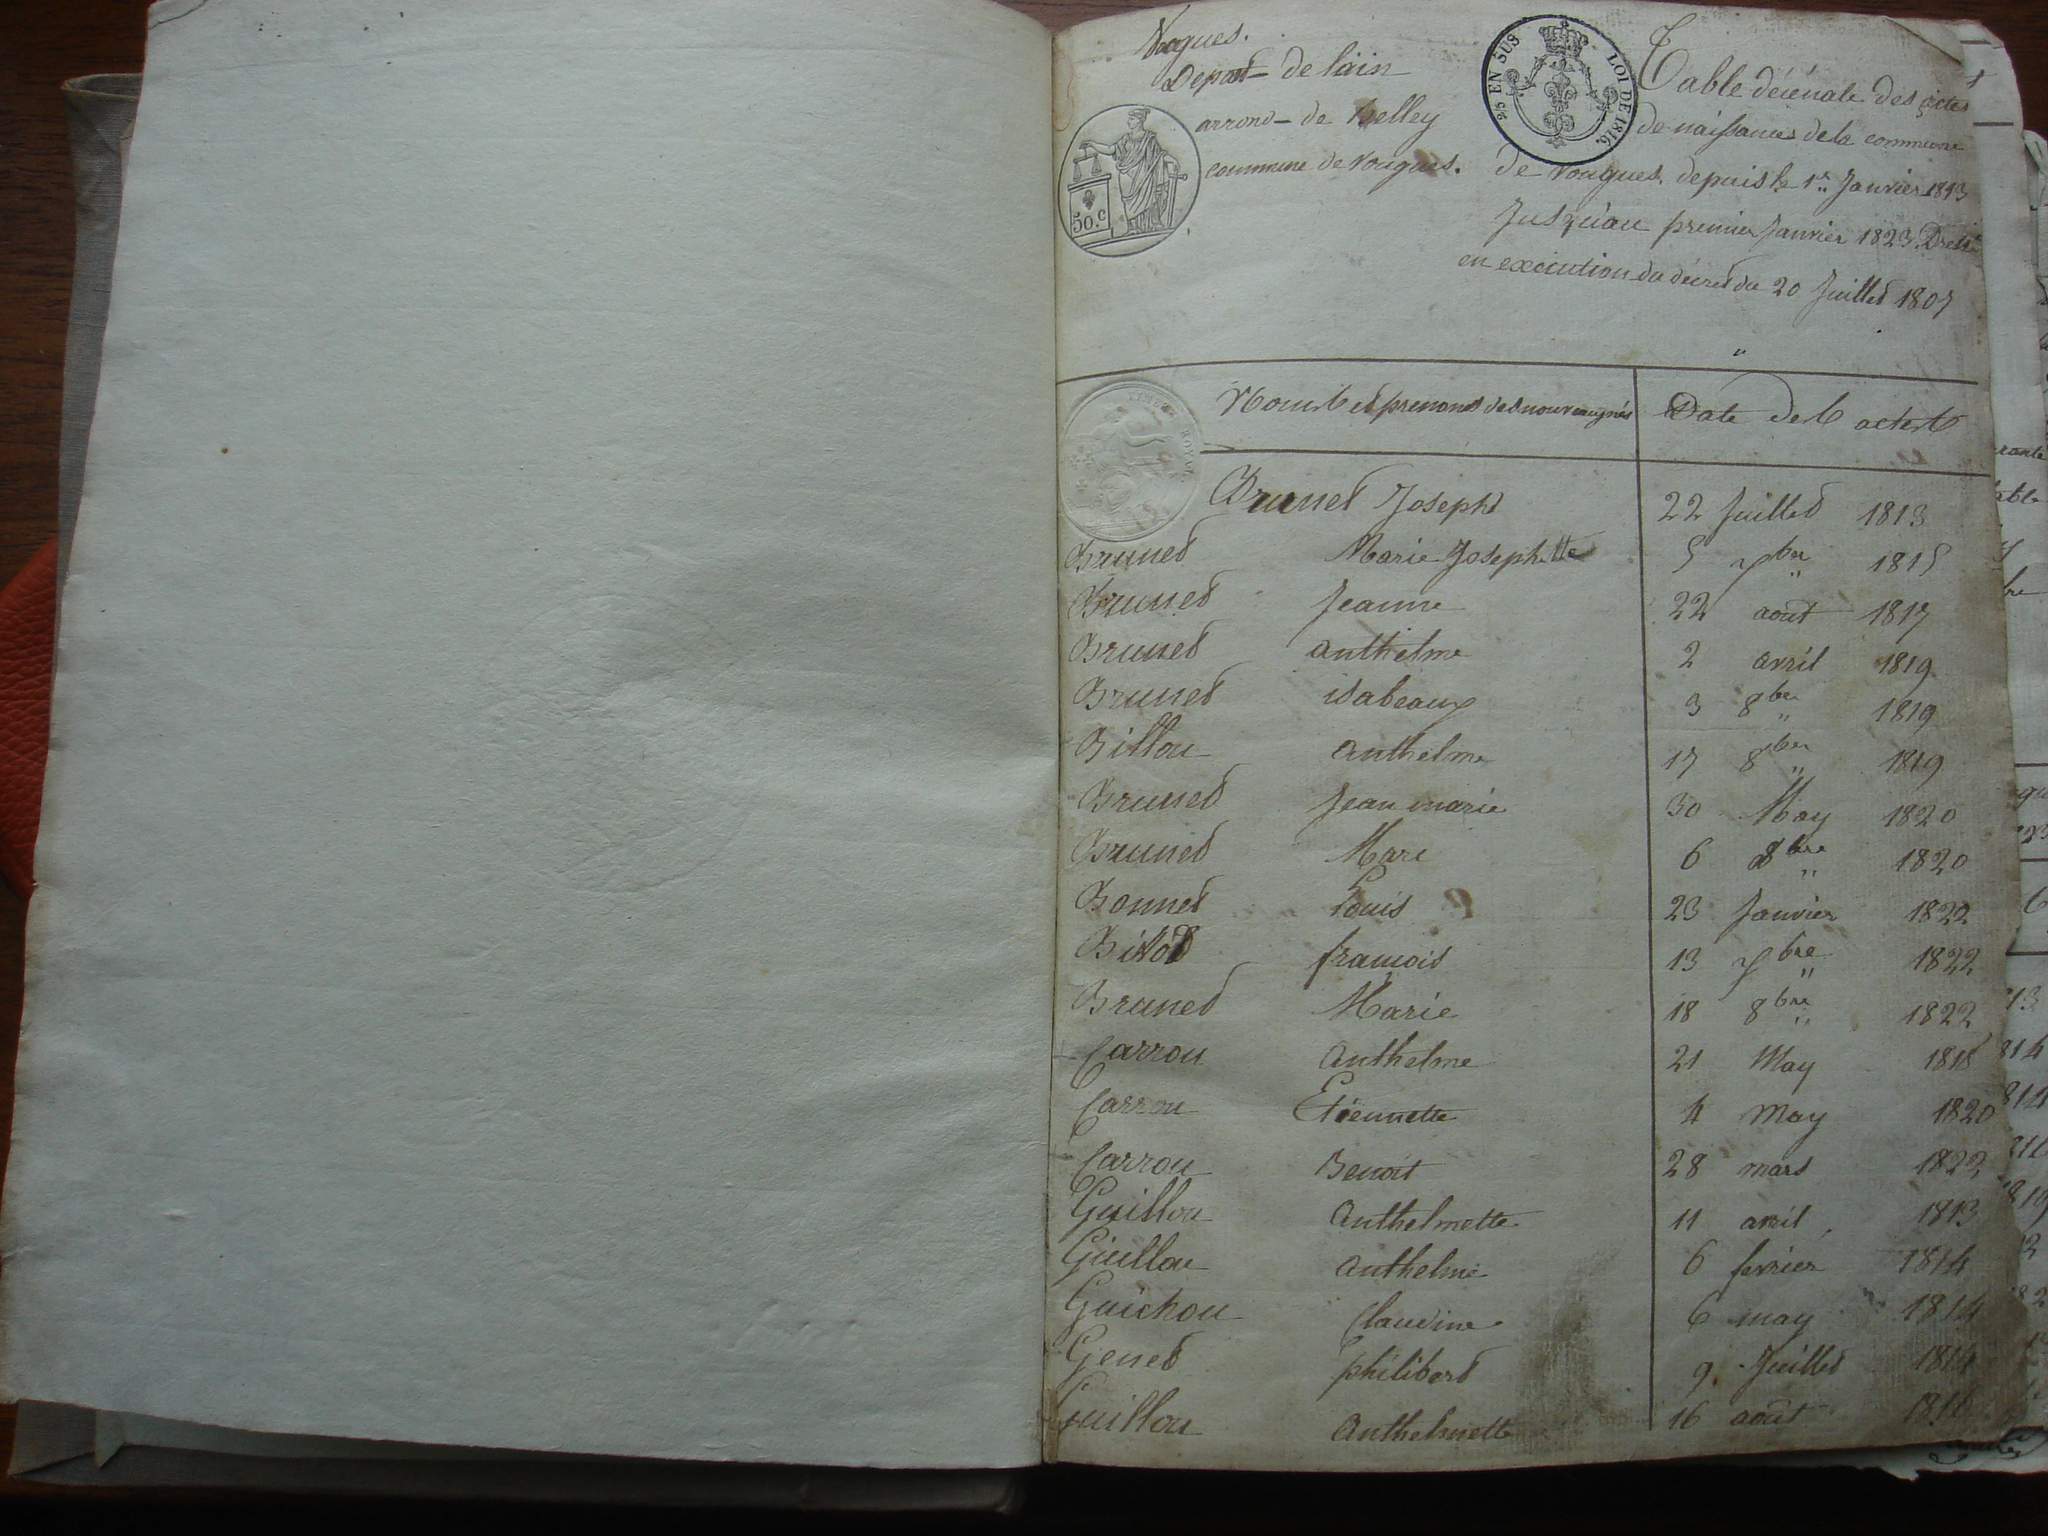 Vogues.
Depart de lain
arrond de Belley
commune de Vougues.
50. C
25 EN SUS
LOI DE 1816.
Table décénale des actes
de naissances de la commune
de Vougues. depuis le 1er Janvier 1813
Jusqu'au premier Janvier 1823. Dressé
en exécution du décret du 20 Juillet 1807
TIMBRE ROYAL
Noms et prenoms des nouveaux nés Date des actes
Brunet Joseph 22 Juillet 1813
Brunet Marie Josephette 5 7bre 1815
Brunet Jeanne 22 aout 1817
Brunet anthelme 2 avril 1819
Brunet isabeaux 3 8bre 1819
Billou anthelme 17 8bre 1819
Brunet Jean marie 30 May 1820
Brunet Marc 6 8bre 1820
Bonnet Louis 23 Janvier 1822
françois 13 7bre 1822
Brunet Marie 18 8bre 1822
Carrou anthelme 21 May 1818
Carrou Etiennette 4 may 1820
Carrou Benoit 28 mars 1822
Guillou anthelmette 11 avril 1813
Guillou anthelme 6 fevrier 1814
Guichou Claudine 6 may 1814
Genet philibert 9 Juillet 1814
Guillou anthelmette 16 aout 1816